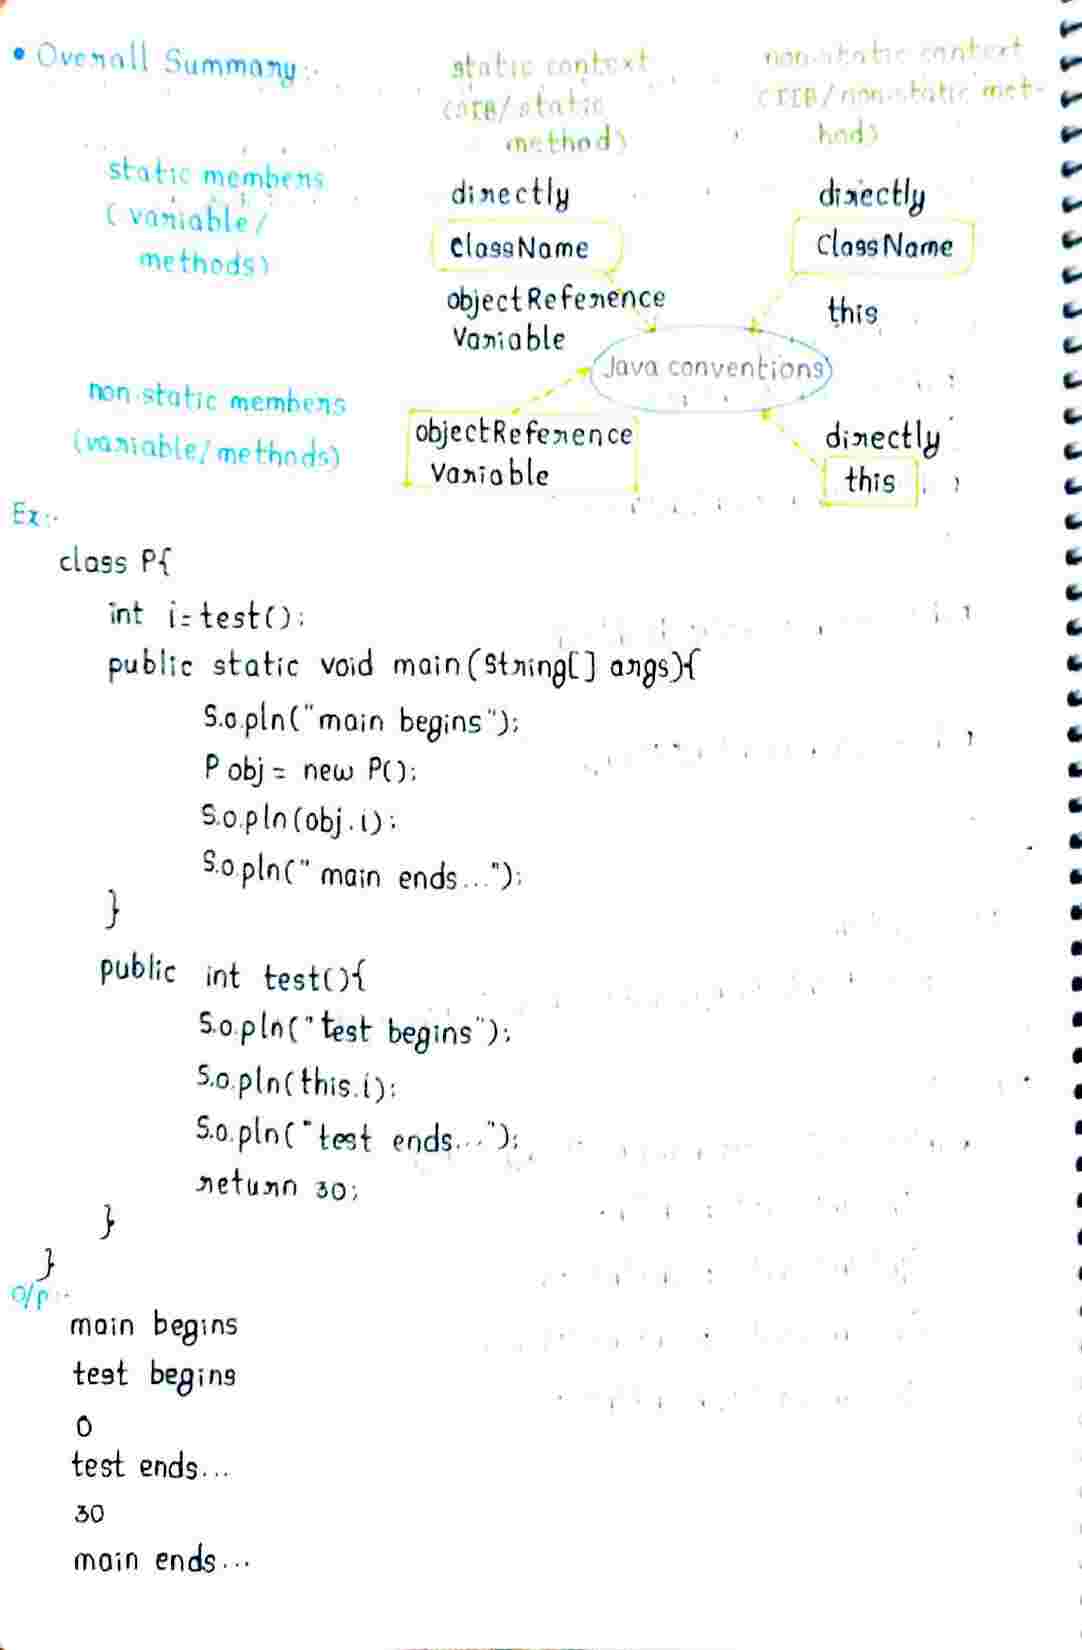 • Overall Summary:-
static context
(SIB/static
method)
non-static context
(IIB/non-static met-
hod)
static members
(variable/
methods)
directly
className
objectReference
Variable
directly
ClassName
this
Java conventions
non-static members
(variable/methods)
objectReference
Variable
directly
this
Ex:-
class P{
int i=test();
public static void main(String[] args){
S.o.pln("main begins");
P obj = new P();
S.o.pln(obj.i);
S.o.pln("main ends...");
}
public int test(){
S.o.pln("test begins");
S.o.pln(this.i);
S.o.pln("test ends...");
return 30;
}
}
O/p:-
main begins
test begins
0
test ends...
30
main ends...